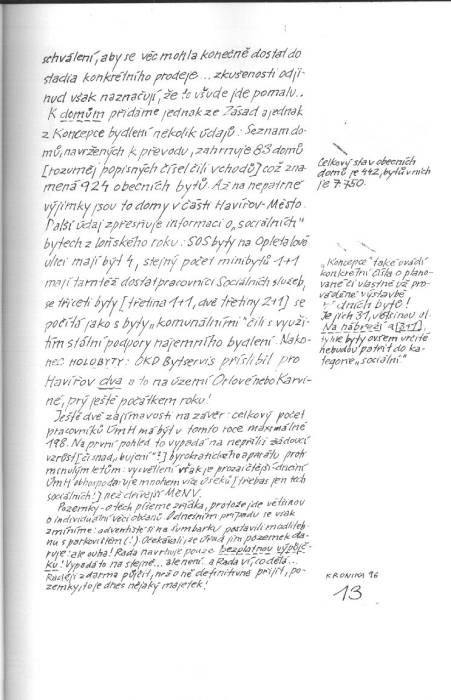 schválení, aby se věc mohla konečně dostat do
stadia konkrétního prodeje... zkušenosti odji-
nud však naznačují, že to všude jde pomalu..
K domům přidáme jednak ze Zásad a jednak
z Koncepce bydlení několik údajů: Seznam do-
mů, navržených k převodu, zahrnuje 83 domů
[rozuměj popisných čísel čili vchodů] což zna-
mená 924 obecních bytů. Až na nepatrné
výjimky jsou to domy v části Havířov-Město.
Další údaj zpřesňuje informaci o „sociálních"
bytech z loňského roku: SOS byty na Opletalově
ulici mají být 4, stejný počet minibytů 1+1
mají tamtéž dostat pracovníci Sociálních služeb,
se třiceti byty [třetina 1+1, dvě třetiny 2+1] se
počítá jako s byty „komunálními" čili s využi-
tím stálé podpory nájemního bydlení. Nako-
nec HOLOBYTY: OKD Bytservis přislíbil pro
Havířov dva a to na území Orlové nebo Karvi-
né, prý ještě počátkem roku!
Ještě dvě zajímavosti na závěr: celkový počet
pracovníků ÚmH má být v tomto roce maximálně
198. Na první pohled to vypadá na nepříliš žádoucí
vzrůst [či snad „bujení"?] byrokratického aparátu proti
minulým letům: vysvětlení však je prozaičtější: dnešní
ÚmH obhospodařuje mnohem více úseků [třebas jen těch
sociálních!] než dřívější MěNV.
Pozemky - o těch píšeme zřídka, protože jde většinou
o individuální věci občanů. O dnešním případu se však
zmíníme: adventisté si na Šumbarku postavili modliteb-
nu s parkovištěm (!) Očekávali, že úřad jim pozemek da-
ruje: ale ouha! Rada navrhuje pouze bezplatnou výpůjč-
ku! Vypadá to na stejné... ale není. a Rada ví, co dělá...
Raději zdarma půjčit, než o ně definitivně přijít, po-
zemky, to je dnes nějaký majetek!
Celkový stav obecních
domů je 442, bytů v nich
je 7 750.
„Koncepce" také uvádí
konkrétní čísla o pláno-
vané či vlastně už pro-
váděné výstavbě
dních bytů!
Je jich 31, většinou ul.
Na nábřeží a [3+1],
tyhle byty ovšem určitě
nebudou patřit do ka-
tegorie „sociální"
KRONIKA 96
13